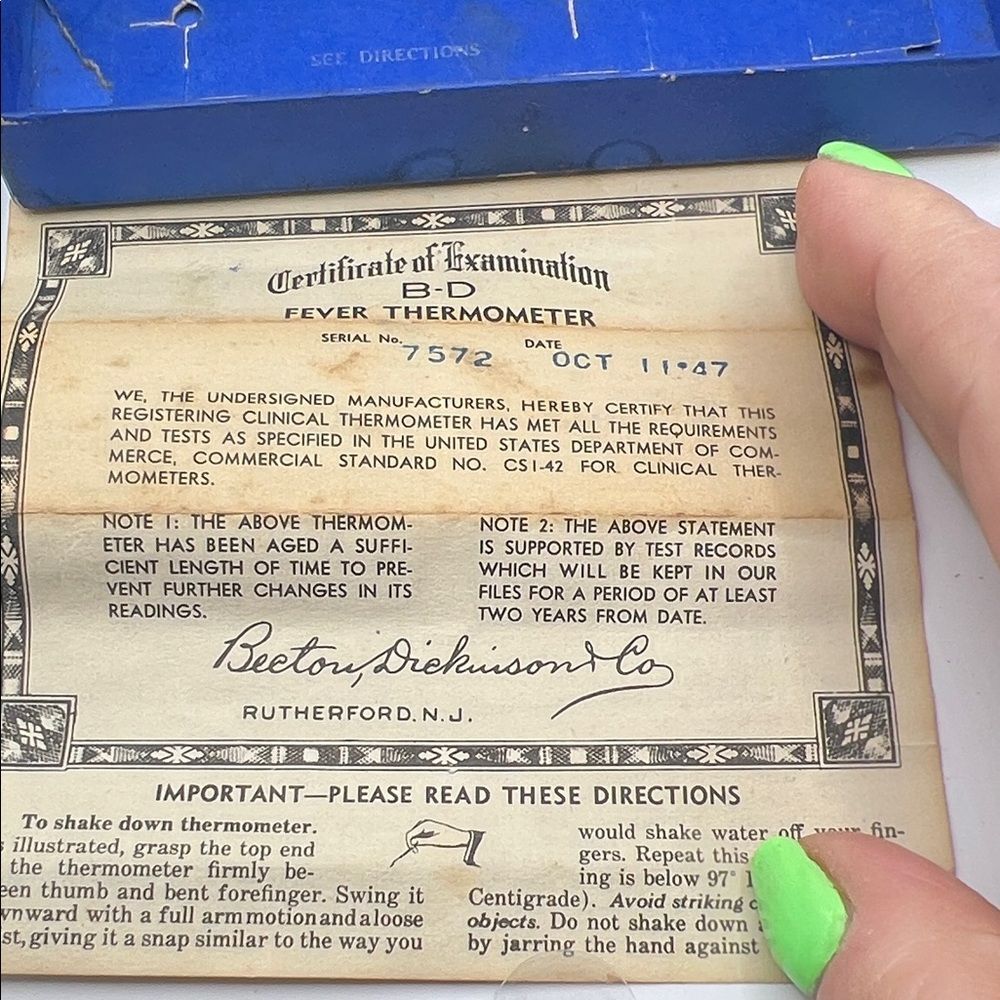 SEE DIRECTIONS
Certificate of Examination
B-D
FEVER THERMOMETER
SERIAL No. 7572 DATE OCT 11•47
WE, THE UNDERSIGNED MANUFACTURERS, HEREBY CERTIFY THAT THIS
REGISTERING CLINICAL THERMOMETER HAS MET ALL THE REQUIREMENTS
AND TESTS AS SPECIFIED IN THE UNITED STATES DEPARTMENT OF COM-
MERCE, COMMERCIAL STANDARD NO. CS1-42 FOR CLINICAL THER-
MOMETERS.
NOTE 1: THE ABOVE THERMOM-
ETER HAS BEEN AGED A SUFFI-
CIENT LENGTH OF TIME TO PRE-
VENT FURTHER CHANGES IN ITS
READINGS.
NOTE 2: THE ABOVE STATEMENT
IS SUPPORTED BY TEST RECORDS
WHICH WILL BE KEPT IN OUR
FILES FOR A PERIOD OF AT LEAST
TWO YEARS FROM DATE.
Becton, Dickinson & Co
RUTHERFORD, N.J.
IMPORTANT—PLEASE READ THESE DIRECTIONS
To shake down thermometer.
illustrated, grasp the top end
the thermometer firmly be-
een thumb and bent forefinger. Swing it
wnward with a full arm motion and a loose
st, giving it a snap similar to the way you
would shake water off your fin-
gers. Repeat this
ing is below 97°
Centigrade). Avoid striking
objects. Do not shake down
by jarring the hand against